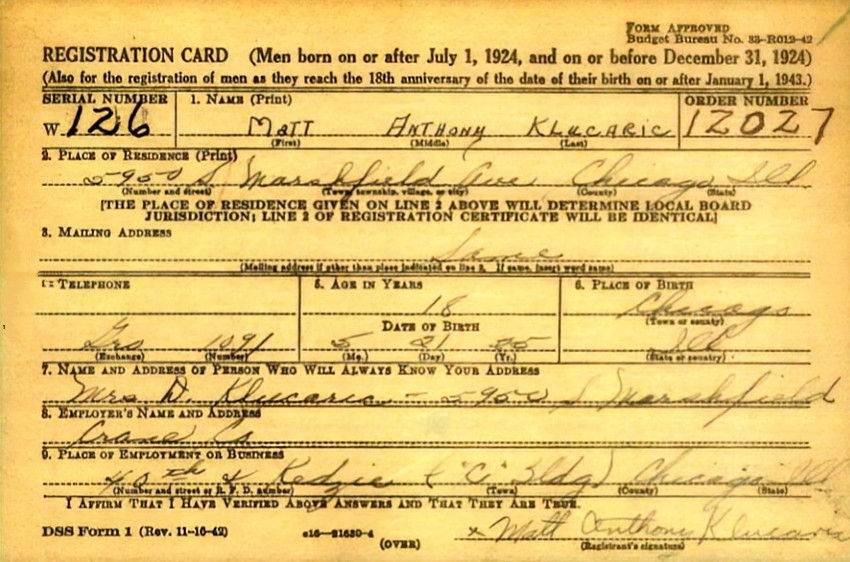 FORM APPROVED
Budget Bureau No. 33-R012-42
REGISTRATION CARD (Men born on or after July 1, 1924, and on or before December 31, 1924)
(Also for the registration of men as they reach the 18th anniversary of the date of their birth on or after January 1, 1943.)
SERIAL NUMBER 1. NAME (Print) ORDER NUMBER
W 126 MATT ANTHONY KLUCARIC 12027
(First) (Middle) (Last)
2. PLACE OF RESIDENCE (Print)
5950 S Marshfield Ave Chicago Ill
(Number and street) (Town, township, village, or city) (County) (State)
[THE PLACE OF RESIDENCE GIVEN ON LINE 2 ABOVE WILL DETERMINE LOCAL BOARD
JURISDICTION; LINE 2 OF REGISTRATION CERTIFICATE WILL BE IDENTICAL]
3. MAILING ADDRESS
Same
(Mailing address if other than place indicated on line 2. If same, insert word same)
TELEPHONE 5. AGE IN YEARS 6. PLACE OF BIRTH
18 Chicago
DATE OF BIRTH (Town or county)
Gro 1091 5 21 25 Ill
(Exchange) (Number) (Mo.) (Day) (Yr.) (State or country)
7. NAME AND ADDRESS OF PERSON WHO WILL ALWAYS KNOW YOUR ADDRESS
Mrs D. Klucaric - 5950 S Marshfield
8. EMPLOYER'S NAME AND ADDRESS
Crane Co
9. PLACE OF EMPLOYMENT OR BUSINESS
40th & Kedzie ("C" Bldg) Chicago Ill
(Number and street or R. F. D. number) (Town) (County) (State)
I AFFIRM THAT I HAVE VERIFIED ABOVE ANSWERS AND THAT THEY ARE TRUE.
DSS Form 1 (Rev. 11-16-42) c16-21630-4 x Matt Anthony Klucaric
(OVER) (Registrant's signature)